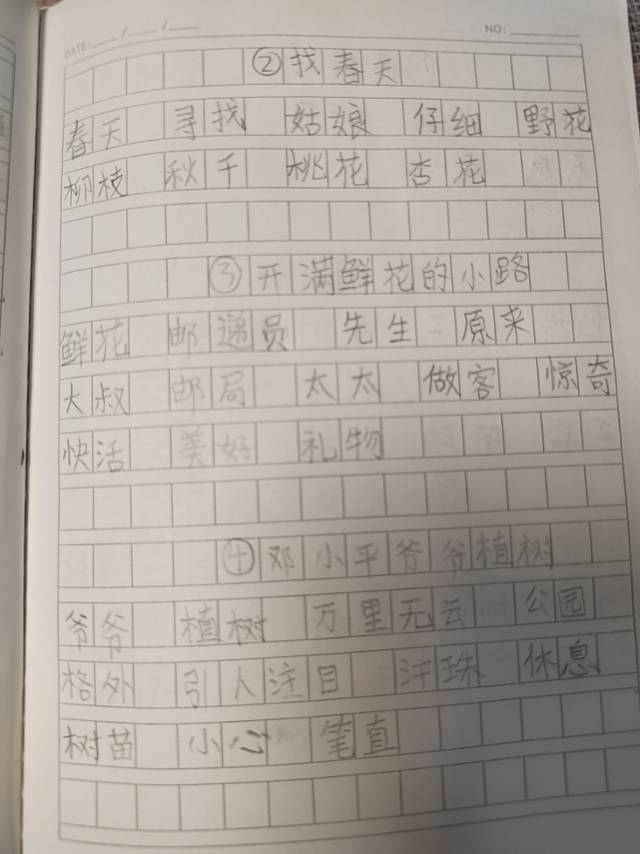 DATE: / / NO:
②找春天
春天 寻找 姑娘 仔细 野花
柳枝 秋千 桃花 杏花
③开满鲜花的小路
鲜花 邮递员 先生 原来
大叔 邮局 太太 做客 惊奇
快活 美好 礼物
④邓小平爷爷植树
爷爷 植树 万里无云 公园
格外 引人注目 汗珠 休息
树苗 小心 笔直